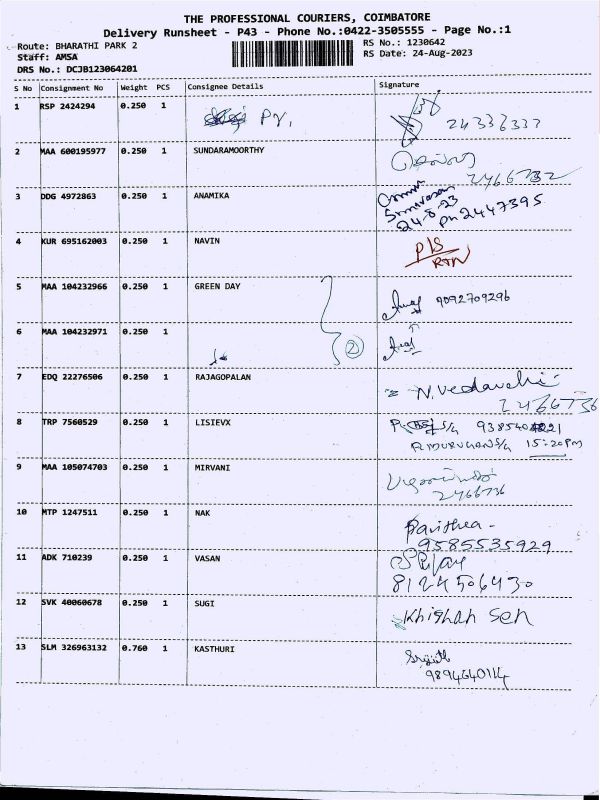 THE PROFESSIONAL COURIERS, COIMBATORE
Delivery Runsheet - P43 - Phone No.:0422-3505555 - Page No.:1
Route: BHARATHI PARK 2 RS No.: 1230642
Staff: AMSA RS Date: 24-Aug-2023
DRS No.: DCJB123064201
S No Consignment No Weight PCS Consignee Details Signature
1 RSP 2424294 0.250 1
2 MAA 600195977 0.250 1 SUNDARAMOORTHY
2466732
3 DDG 4972863 0.250 1 ANAMIKA
Srinivasan
24-8-23
Ph 2447395
4 KUR 695162003 0.250 1 NAVIN
P/S
RTN
5 MAA 104232966 0.250 1 GREEN DAY
9092709296
6 MAA 104232971 0.250 1
2
7 EDQ 22276506 0.250 1 RAJAGOPALAN
N. Vedavalli
2466736
8 TRP 7560529 0.250 1 LISIEVX
S/G
P. MURUGHAN S/G 15:20 PM
9 MAA 105074703 0.250 1 MIRVANI
2466736
10 MTP 1247511 0.250 1 NAK
Pavithra -
9585535929
11 ADK 710239 0.250 1 VASAN
8124506430
12 SVK 40060678 0.250 1 SUGI
Khishan Sen
13 SLM 326963132 0.760 1 KASTHURI
9894640114